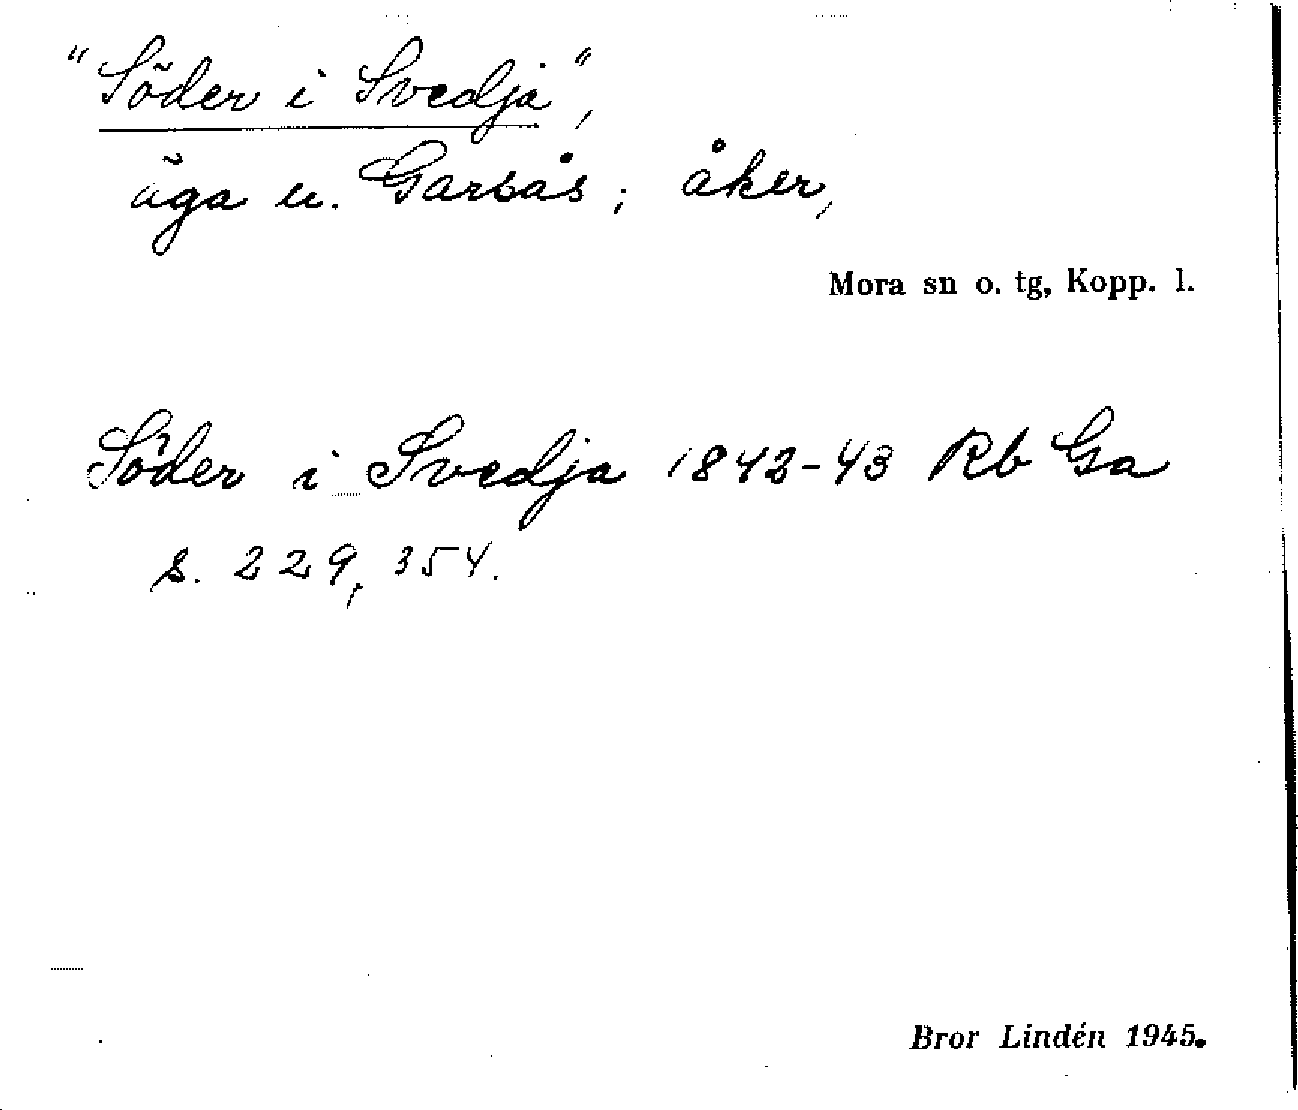 "Söder i Svedja",
äga u. Garsås; åker,
Mora sn o. tg, Kopp. l.
Söder i Svedja 1842-43 Rb Ga
s. 229, 354.
Bror Lindén 1945.